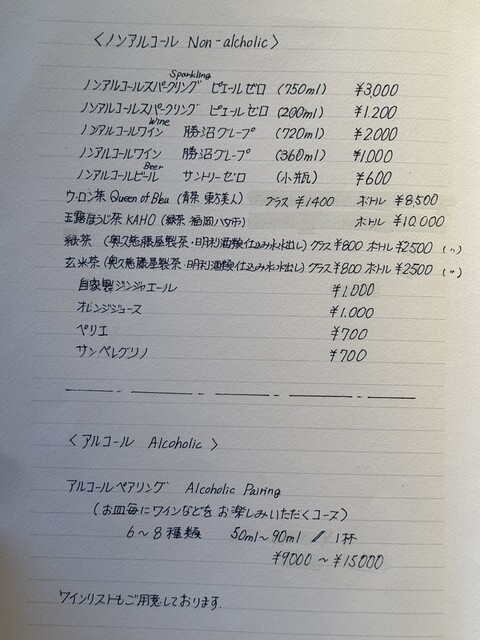 〈ノンアルコール Non-alcholic〉
Sparkling
ノンアルコールスパークリング ピエールゼロ (750ml) ¥3,000
ノンアルコールスパークリング ピエールゼロ (200ml) ¥1.200
Wine
ノンアルコールワイン 勝沼グレープ (720ml) ¥2.000
ノンアルコールワイン 勝沼グレープ (360ml) ¥1.000
Beer
ノンアルコールビール サントリーゼロ (小瓶) ¥600
ウーロン茶 Queen of Blue (青茶 東方美人) グラス ¥1400 ボトル ¥8,500
玉露ほうじ茶 KAHO (緑茶 福岡八女市) ボトル ¥10,000
緑茶 (奥久慈藤屋製茶・明利酒類仕込み水水出し) グラス ¥800 ボトル ¥2500 (〃)
玄米茶 (奥久慈藤屋製茶・明利酒類仕込み水水出し) グラス ¥800 ボトル ¥2500 (〃)
自家製ジンジャエール ¥1.000
オレンジジュース ¥1.000
ペリエ ¥700
サンペレグリノ ¥700
〈アルコール Alcoholic〉
アルコールペアリング Alcoholic Pairing
(お皿毎にワインなどをお楽しみいただくコース)
6〜8種類 50ml〜90ml // 1杯
¥9000 〜 ¥15000
ワインリストもご用意しております.